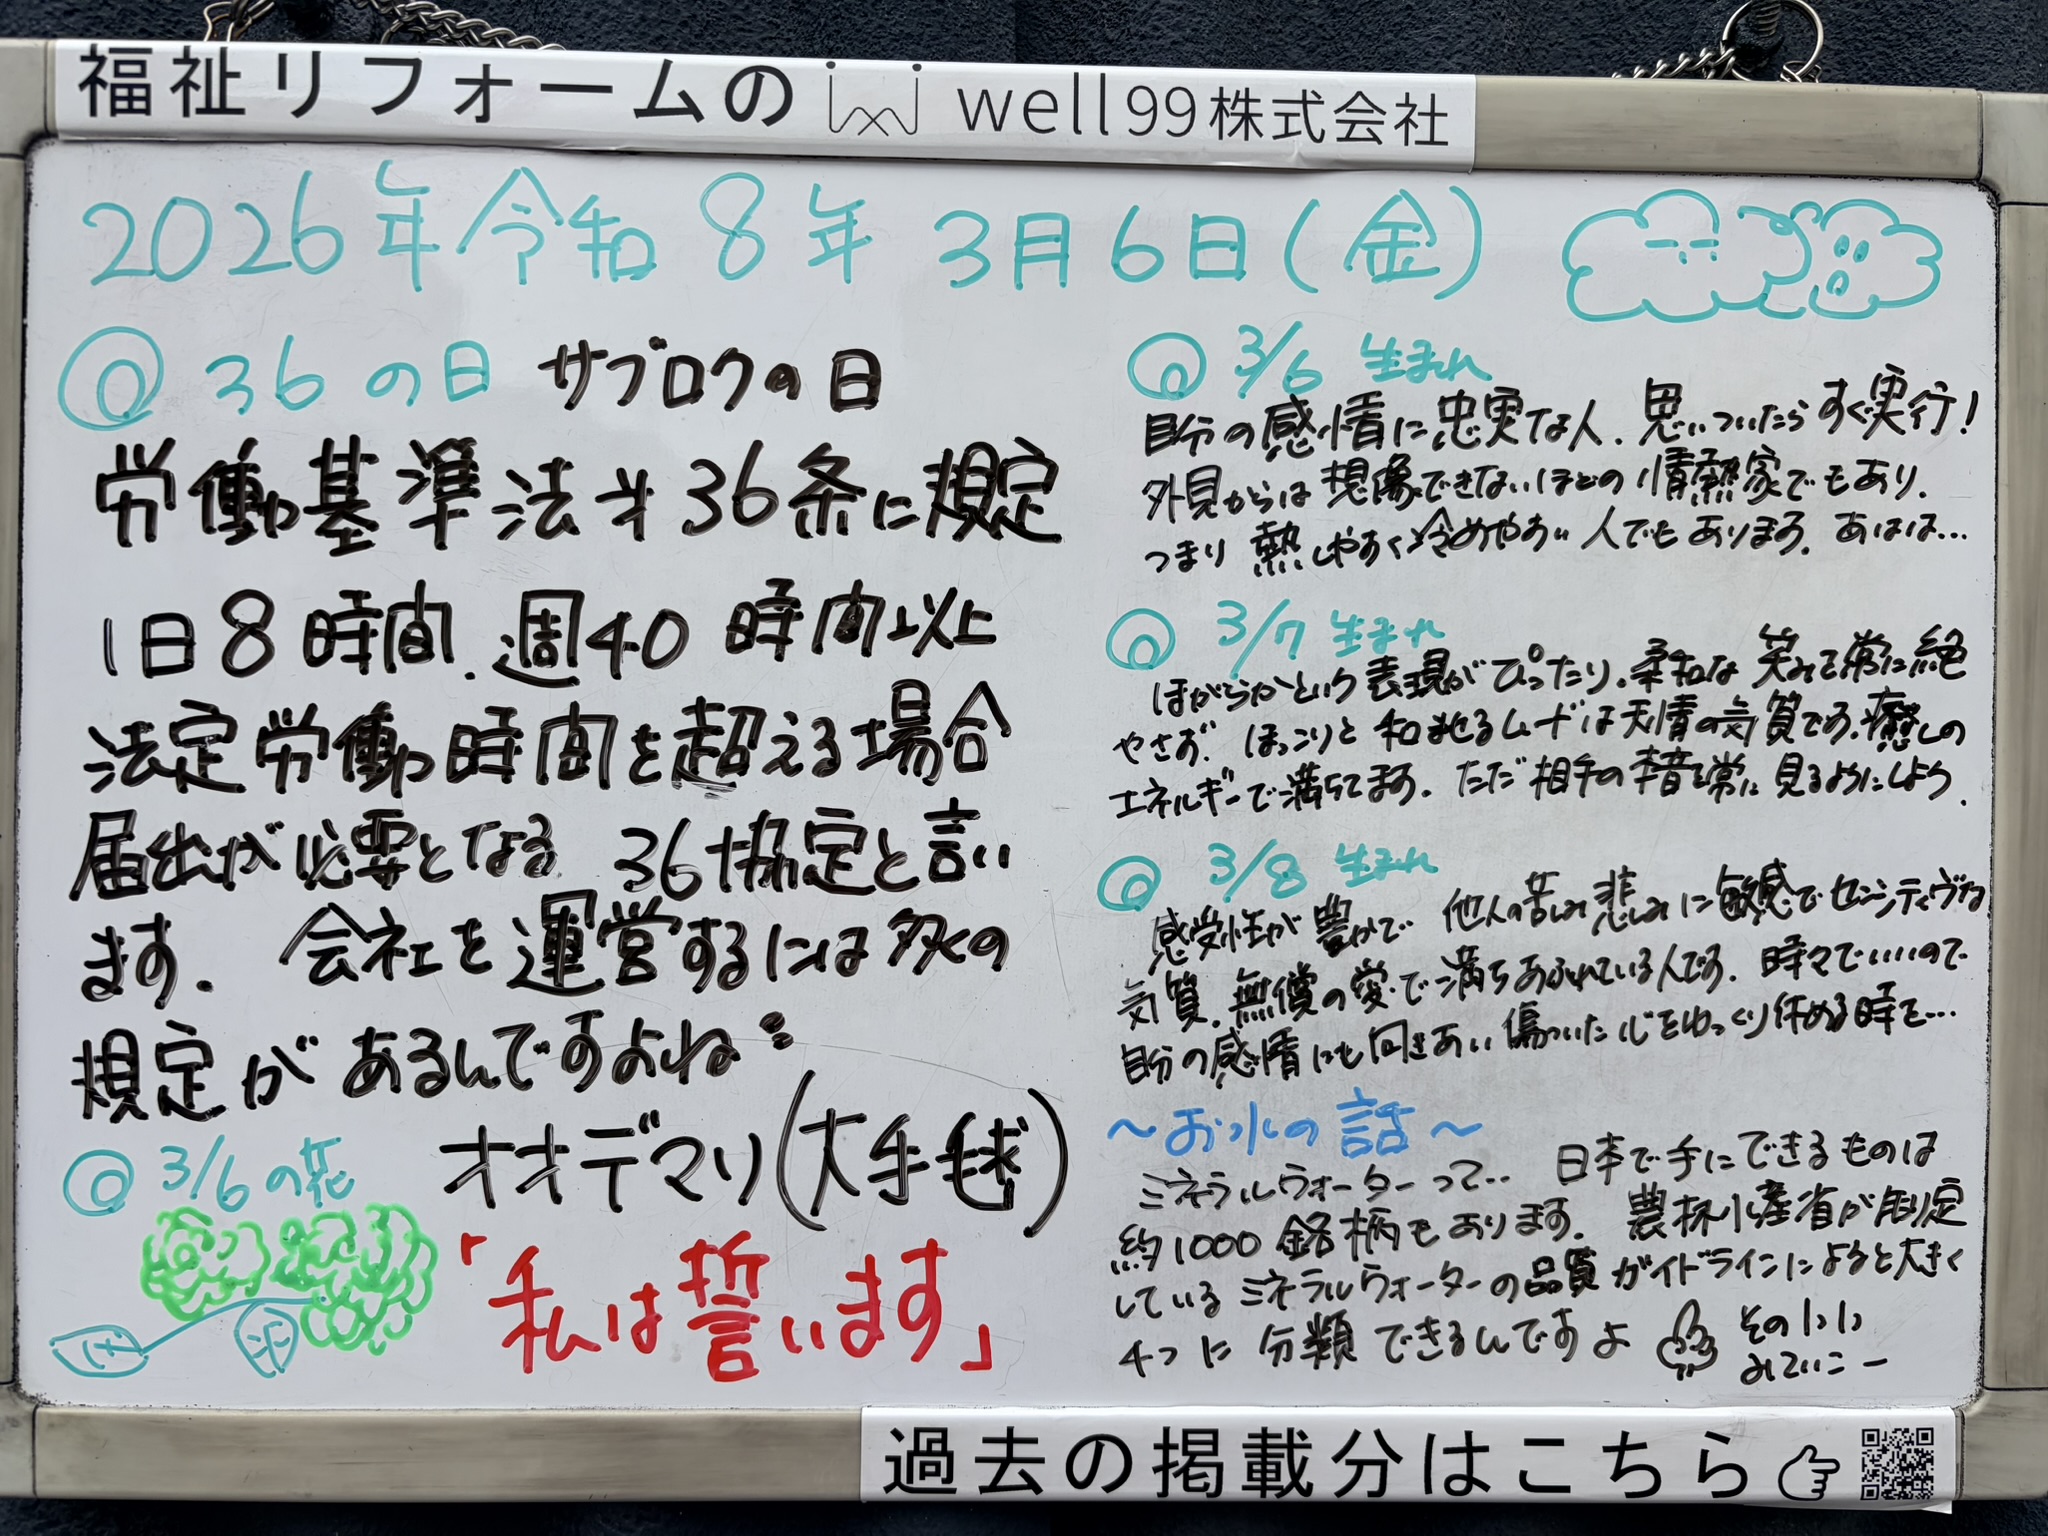 福祉リフォームの well99株式会社
2026年令和8年 3月6日(金)
36の日 サブロクの日
労働基準法才36条に規定
1日8時間.週40時間以上
法定労働時間を超える場合
届出が必要となる 36協定と言い
ます. 会社を運営するには多くの
規定があるんですよね
3/6の花 オオデマリ(大手毬)
「私は誓います」
3/6 生まれ
自分の感情に忠実な人.思いついたらすぐ実行!
外見からは想像できないほどの情熱家でもあり.
つまり熱しやすく冷めやすい人でもあります.あはは…
3/7 生まれ
ほがらかという表現がぴったり.柔和な笑みを常に絶
やさず.ほっこりと和ませるムードは天情の気質です.癒しの
エネルギーで満ちてます.ただ相手の本音を常に見るようにしよう.
3/8 生まれ
感受性が豊かで 他人の苦しみ悲しみに敏感でセンシティヴな
気質.無償の愛で満ちあふれている人です.時々でいいので
自分の感情にも向きあい傷ついた心をゆっくり休める時を…
~お水の話~
ミネラルウォーターって.. 日本で手にできるものは
約1000銘柄もあります. 農林水産省が制定
しているミネラルウォーターの品質ガイドラインによると大きく
4つに分類できるんですよ
過去の掲載分はこちら